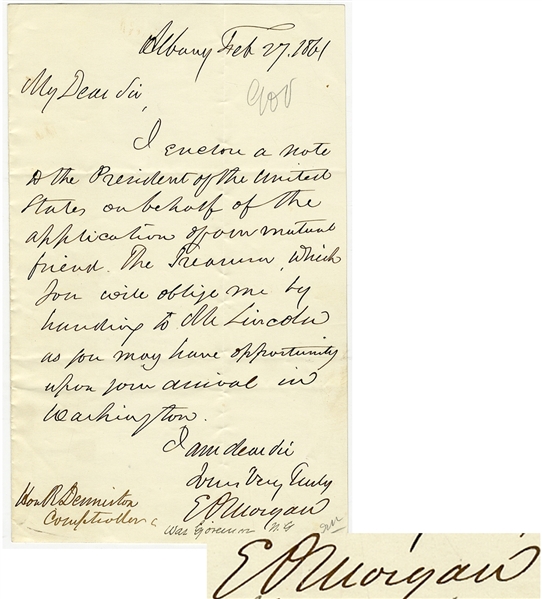 Albany Feb 27. 1861
My Dear Sir,
Gov
I enclose a note
to the President of the United
States on behalf of the
application of our mutual
friend. The Treasurer, which
you will oblige me by
handing to Mr Lincoln
as you may have opportunity
upon your arrival in
Washington.
I am dear sir
Yours Very Truly
E D Morgan
Hon R Denniston
Comptroller
Was Governor N.Y
E D Morgan